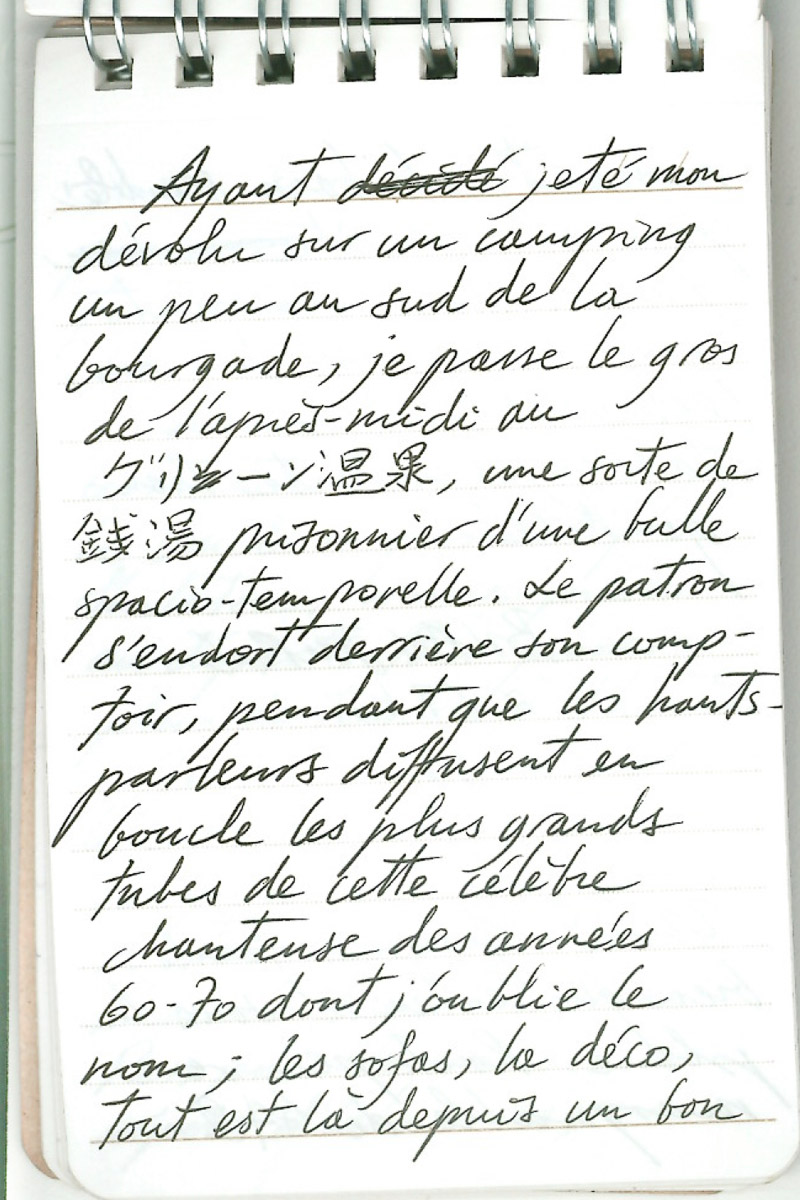 Ayant décidé jeté mon
dévolu sur un camping
un peu au sud de la
bourgade, je passe le gros
de l'après-midi au
グリーン温泉, une sorte de
銭湯 prisonnier d'une bulle
spacio-temporelle. Le patron
s'endort derrière son comp-
toir, pendant que les hauts-
parleurs diffusent en
boucle les plus grands
tubes de cette célèbre
chanteuse des années
60-70 dont j'oublie le
nom ; les sofas, la déco,
tout est là depuis un bon